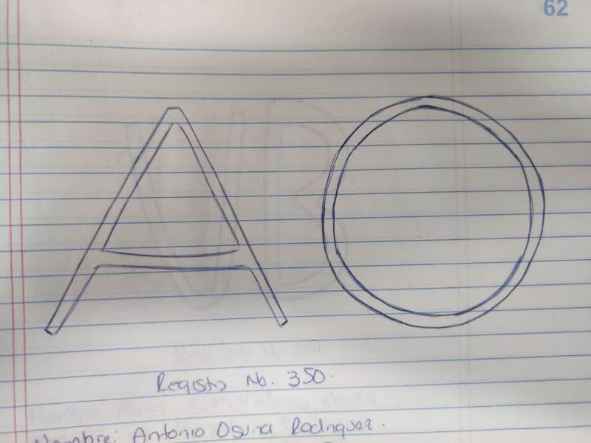 62
A O
Registro No. 350.
Nombre: Antonio Osuna Rodriguez.